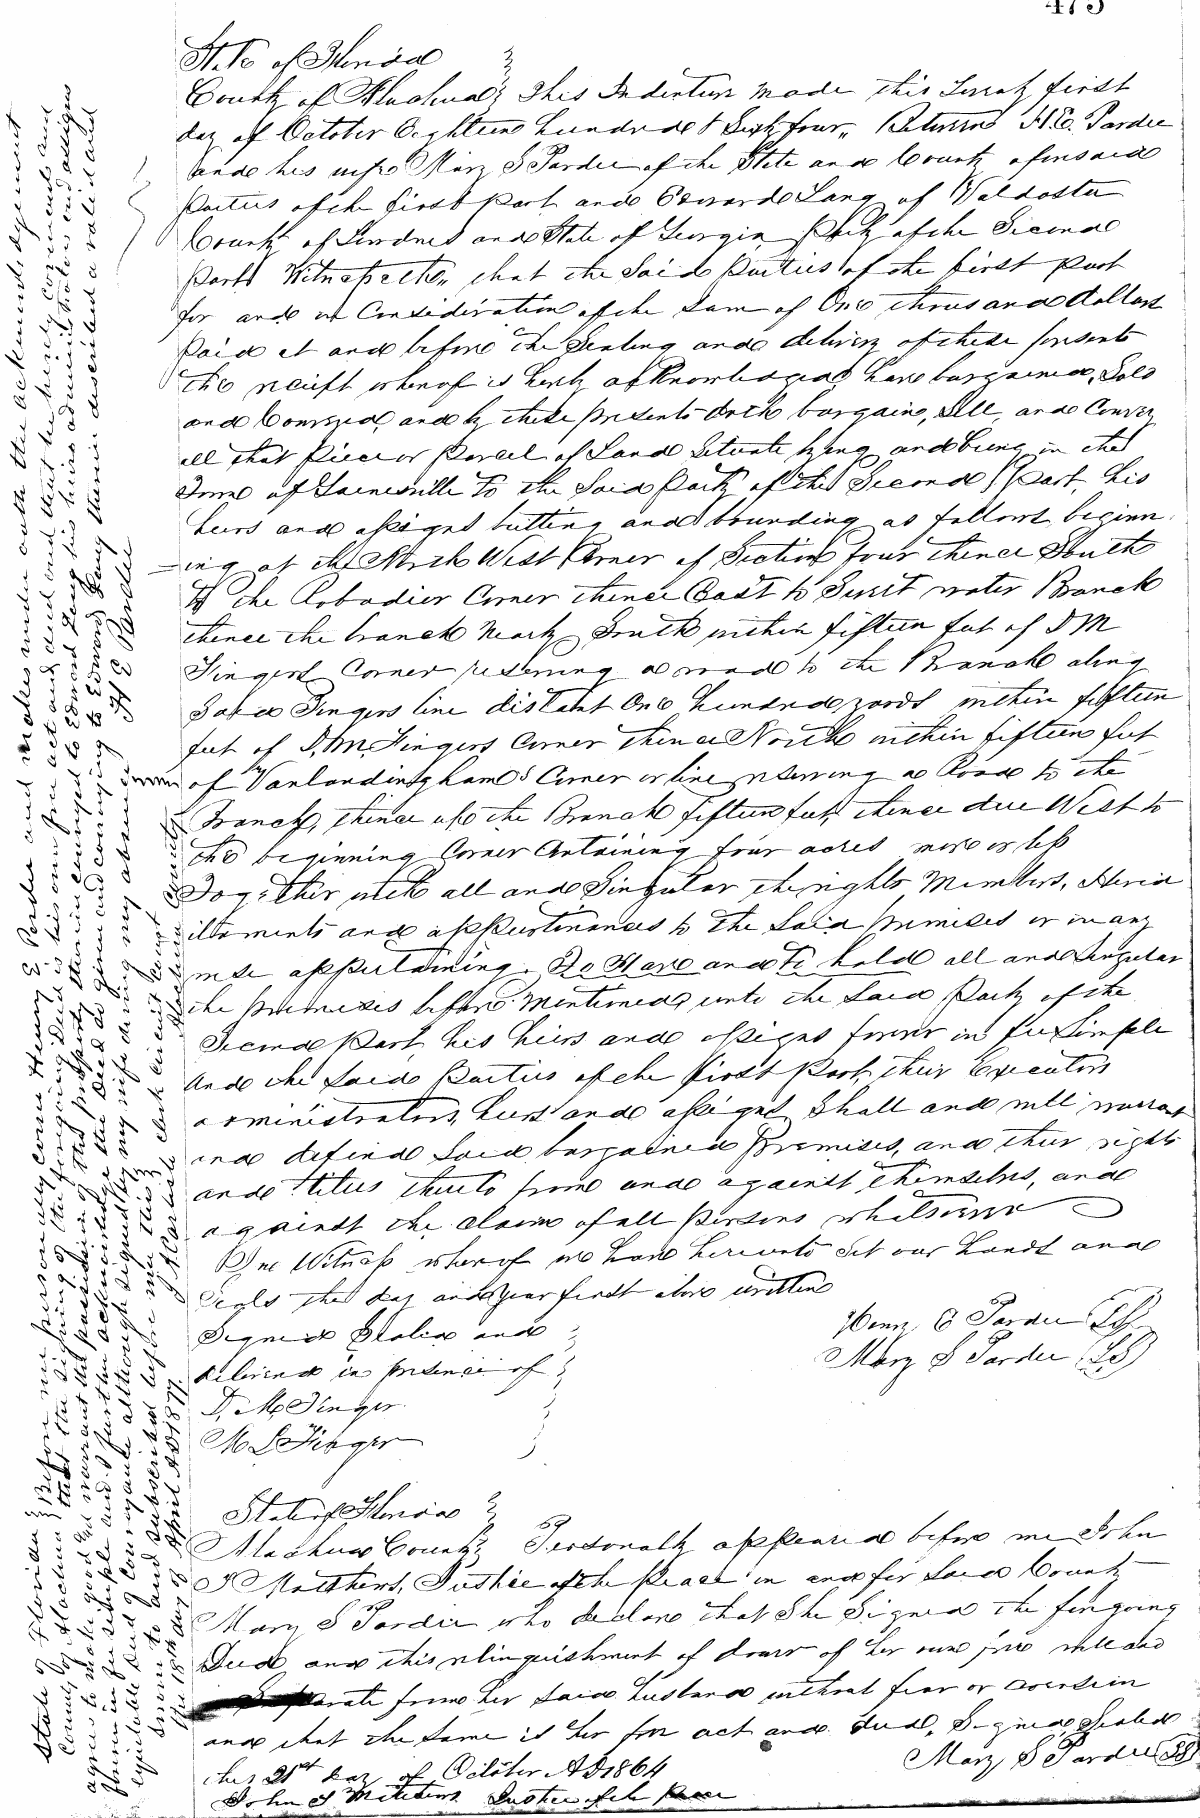 475
State of Florida
County of Alachua This Indenture made this Twenty first
day of October Eighteen hundred & Sixty four, Between H. E. Pardee
and his wife Mary S Pardee of the State and County aforesaid
parties of the first part and Edward Lang of Valdosta
County of Lowdnes and State of Georgia Party of the Second
part Witnesseth, that the Said parties of the first part
for and in Consideration of the Sum of One thousand dollars
paid at and before the Sealing and delivery of these presents
the reciept whereof is herby acknowledged have bargained, Sold
and Conveyed, and by these presents doth bargain, Sell, and Convey
all that piece or parcel of Land Situate lying and being in the
Town of Gainesville to the Said Party of the Second part, his
heirs and assigns butting and bounding as follows beginn
-ing at the North West Corner of Section four thence South
to the Robadier Corner thence East to Sweet water Branch
thence the branch nearly South within fifteen feet of D M
Fingers Corner reserving a road to the Branch along
Said Fingers line distant One hundred yards within fifteen
feet of D. M. Fingers Corner thence North within fifteen feet
of Vanlandingham's Corner or line reserving a Road to the
Branch, thence up the Branch fifteen feet, thence due West to
the beginning Corner Containing four acres more or less
Together with all and Singular the rights Members, Hered
itaments and appurtinances to the Said premises or in any
wise appertaining. To Have and To hold all and Singular
the premises before Mentioned, unto the Said Party of the
Second part, his heirs and assigns forever in fee Simple
And the Said Parties of the first part, their Executors
administrators, heirs and assigns Shall and will warrant
and defend Said bargained Premises, and their rights
and titles thereto from and against themselves, and
against the claims of all persons whatsoever
In Witness whereof we have hereunto set our hands and
Seals the day and year first above written
Signed Sealed and
delivered in presence of
Henry E Pardee LS
Mary S Pardee LS
D. M. Finger
M L Finger
State of Florida
Alachua County Personally appeared before me John
Matthews, Justice of the Peace in and for Said County
Mary S Pardee who declare that She Signed the foregoing
Deed, and this relinquishment of dower of her own free will and
from her Said husband without fear or coersion
and that the Same is her free act and deed, Signed, Sealed
this 21st day of October AD 1864
Mary S Pardee
John Matthews Justice of the Peace
State of Florida Before me personally come Henry E Pardee and makes under oath the acknowledgement
County of Alachua that the signing of the foregoing Deed is his own free act and deed and that he hereby covenants and
agrees to make good and warrant the possession of this property therein conveyed to Edward Lang his heirs administrators and assigns
forever in fee simple and I further acknowledge the Deed as given and conveying to Edward Lang therein described a valid and
equitable Deed of Conveyance although signed by my wife during my absence H E Pardee
Sworn to and subscribed before me this
the 18th day of April AD 1877. J A Carlisle clerk circuit court
Alachua County